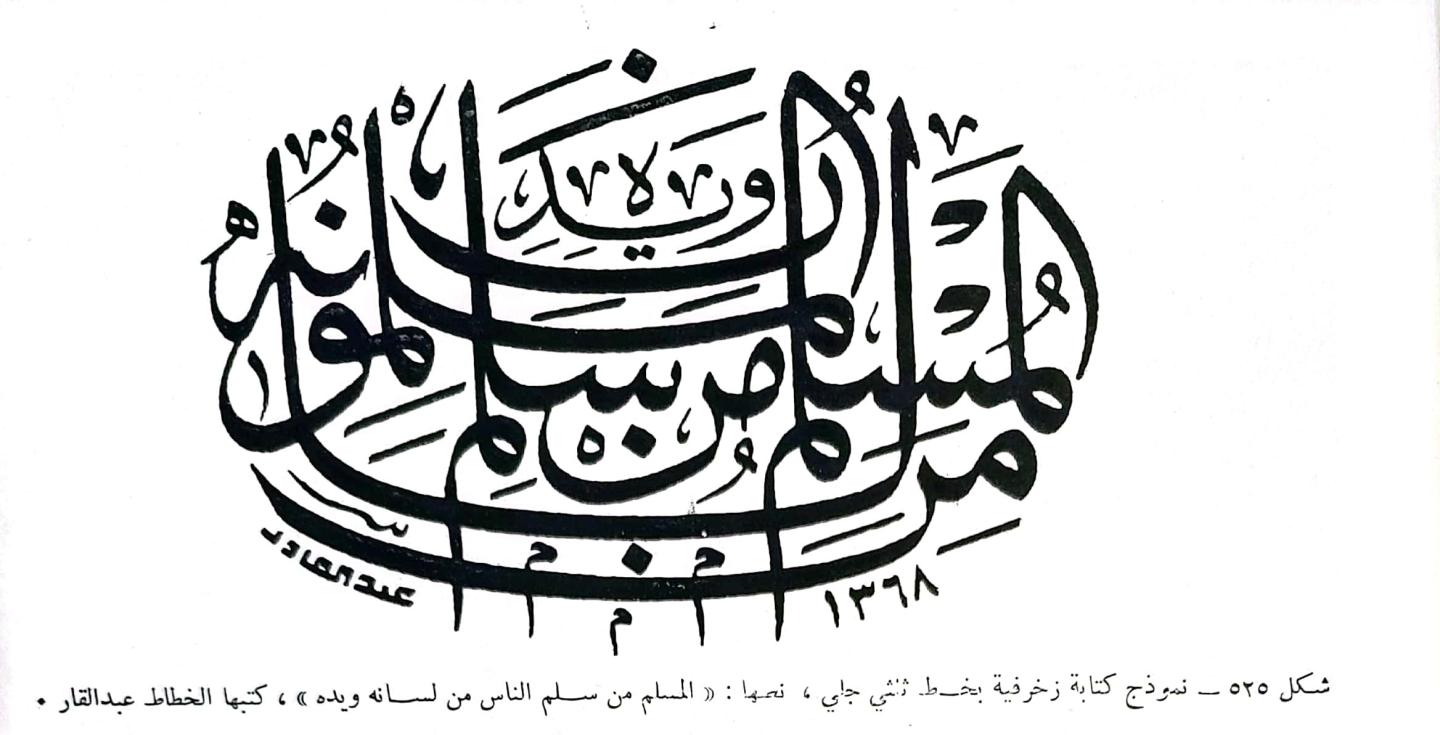 المسلم من سلم المسلمون من لسانه ويده
عبدالقادر
١٣٦٨
شكل ٥٢٥ – نموذج كتابة زخرفية بخط ثلثي جلي ، نصها : « المسلم من سلم الناس من لسانه ويده » ، كتبها الخطاط عبدالقار .